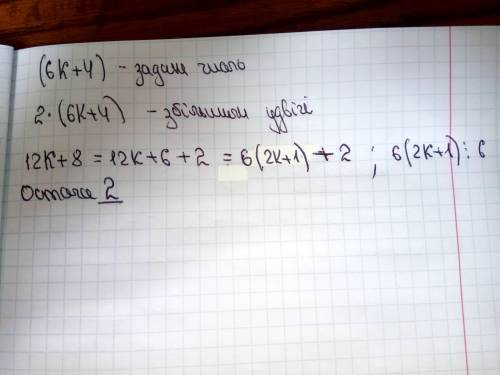 (6К+4) - задане число
2·(6К+4) - збільшили удвічі
12К+8 = 12К+6+2 = 6(2К+1)+2 ; 6(2К+1)⋮6
Остача 2